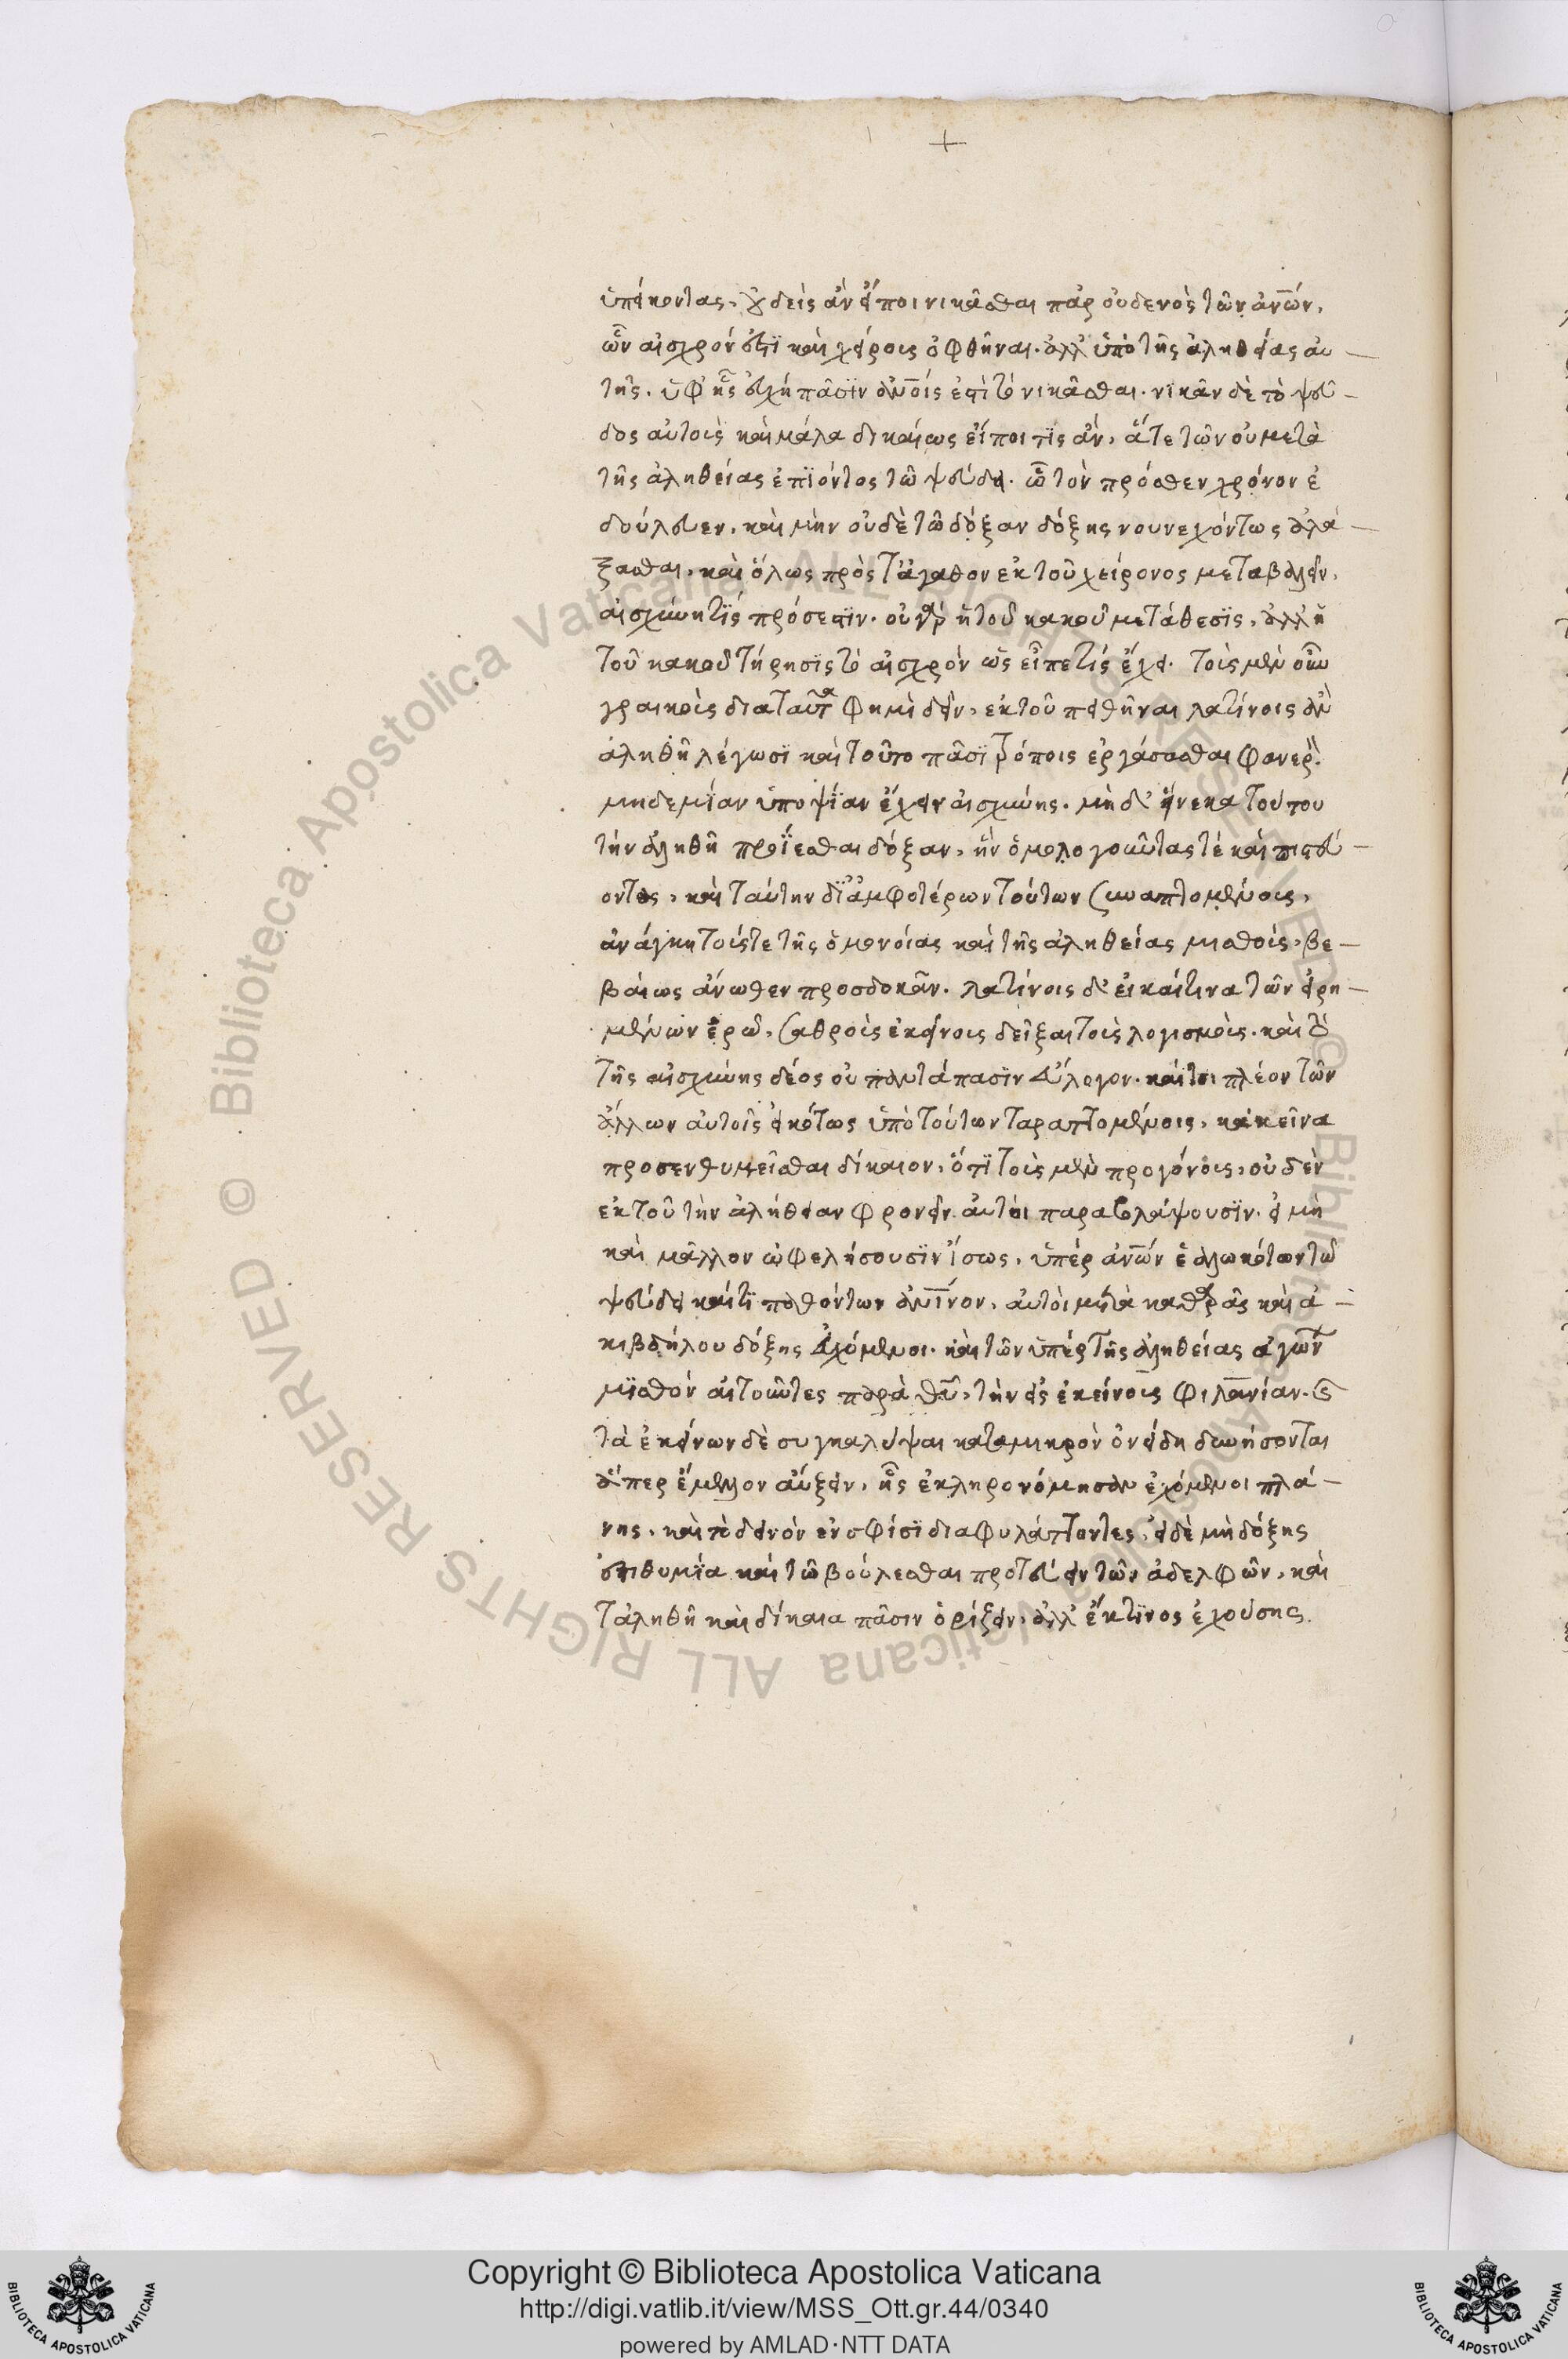 +
ὑπείκοντας, οὐδεὶς ἂν εἴποι νικᾶσθαι παρ οὐδενὸς τῶν ἀνων,
ὧν αἰσχρόν ἐστι καὶ χείροις ὀφθῆναι. ἀλλ ὑπὸ τῆς ἀληθείας αὐ-
τῆς. ὑφ ἧς εὐχὴ πᾶσϊν ἀνοις ἐστὶ τὸ νικᾶσθαι. νϊκᾶν δὲ τὸ ψεῦ-
δος αὐτοὶς καὶ μάλα δικαίως εἴποι τϊς ἄν, ἅτε τῶν οὐ μετὰ
τῆς ἀληθείας ἐπϊόντος τῶ ψεύδει. ὧ τὸν πρόσθεν χρόνον ἐ
δούλευεν. καὶ μὴν οὐδὲ τῶ δόξαν δόξης νουνεχόντως ἀλά-
ξασθαι, καὶ ὅλως πρὸς τἀγαθον ἐκ τοῦ χείρονος μεταβαλεῖν,
αἰσχύνη τϊς πρόσεστϊν. οὐ γὰρ ἡ τοῦ κακοῦ μετάθεσϊς, ἀλλ ἡ
τοῦ κακοῦ τήρησϊς τὸ αἰσχρὸν ὥς εἶπέ τίς ἔχει. τοὶς μὲν οὖν
γραικοὶς διαταῦτα φημὶ δεῖν, ἐκ τοῦ πεισθῆναι λατίνοις ἂν
ἀληθῆ λέγωσϊ καὶ τοῦτο πᾶσϊ τρόποις ἐργάσασθαι φανερόν.
μηδεμΐαν ὑποψΐαν ἔχειν αἰσχύνης. μὴ δ᾽ ἕνεκα τούτου
τὴν ἀληθῆ προΐεσθαι δόξαν, ἣν ὁμολογοῦντας τὲ καὶ πιστεύ-
οντας, καὶ ταύτην δϊ ἀμφοτέρων τούτων συναπτομένοις,
ἀνάγκη τοίς τε τῆς ὁμονοίας καὶ τῆς ἀληθείας μισθοὶς, βε-
βαίως ἄνωθεν προσδοκᾶν. λατίνοις δ᾽ εἰ καί τινα τῶν εἰρη-
μένων ἐρῶ, σαθροὶς ἐκείνοις δεῖξαι τοὶς λογισμοὶς. καὶ τὸ
τῆς αἰσχύνης δέος οὐ παντάπασϊν εὔλογον. καίτοι πλέον τῶν
ἄλλων αὐτοῖς εἰκότως ὑπὸ τούτων ταραττομένοις, κακεῖνα
προσενθυμεῖσθαι δίκαιον, ὅτϊ τοὶς μὲν προγόνοις, οὐδὲν
ἐκ τοῦ τὴν ἀλήθειαν φρονεῖν αὐτοὶ παραβλάψουσϊν. εἰ μὴ
καὶ μᾶλλον ὠφελήσουσϊν ἴσως, ὑπὲρ ἀνων ἑαλωκότων τῶ
ψεύδει καί τϊ παθόντων ἀνινον, αὐτοὶ μετὰ καθαρᾶς καὶ ἀ-
κιβδήλου δόξης εὐχόμενοι. καὶ τῶν ὑπὲρ τῆς ἀληθείας ἀγώνων
μϊσθὸν αἰτοῦντες παρὰ θυ, τὴν εἰς ἐκείνοις φιλανιαν. εἶ
τα ἐκείνων δὲ συγκαλύψαι κατα μικρὸν ὀνείδη δυνήσονται
ἅπερ ἔμελλον αὔξειν, ἧς ἐκληρονόμησαν ἐχόμενοι πλά-
νης. καὶ τὸ δεινὸν ἐν σφίσϊ διαφυλάττοντες. εἰ δὲ μὴ δόξης
ἐπιθυμΐα καὶ τῶ βούλεσθαι πρωτεύειν τῶν ἀδελφῶν, καὶ
τἀληθῆ καὶ δίκαια πᾶσιν ὁρίζειν, ἀλλ ἔκ τϊνος ἐχούσης
Copyright © Biblioteca Apostolica Vaticana
http://digi.vatlib.it/view/MSS_Ott.gr.44/0340
powered by AMLAD·NTT DATA
BIBLIOTECA APOSTOLICA VATICANA
BIBLIOTECA APOSTOLICA VATICANA
© Biblioteca Apostolica Vaticana ALL RIGHTS RESERVED © Biblioteca Apostolica Vaticana ALL RIGHTS RESERVED